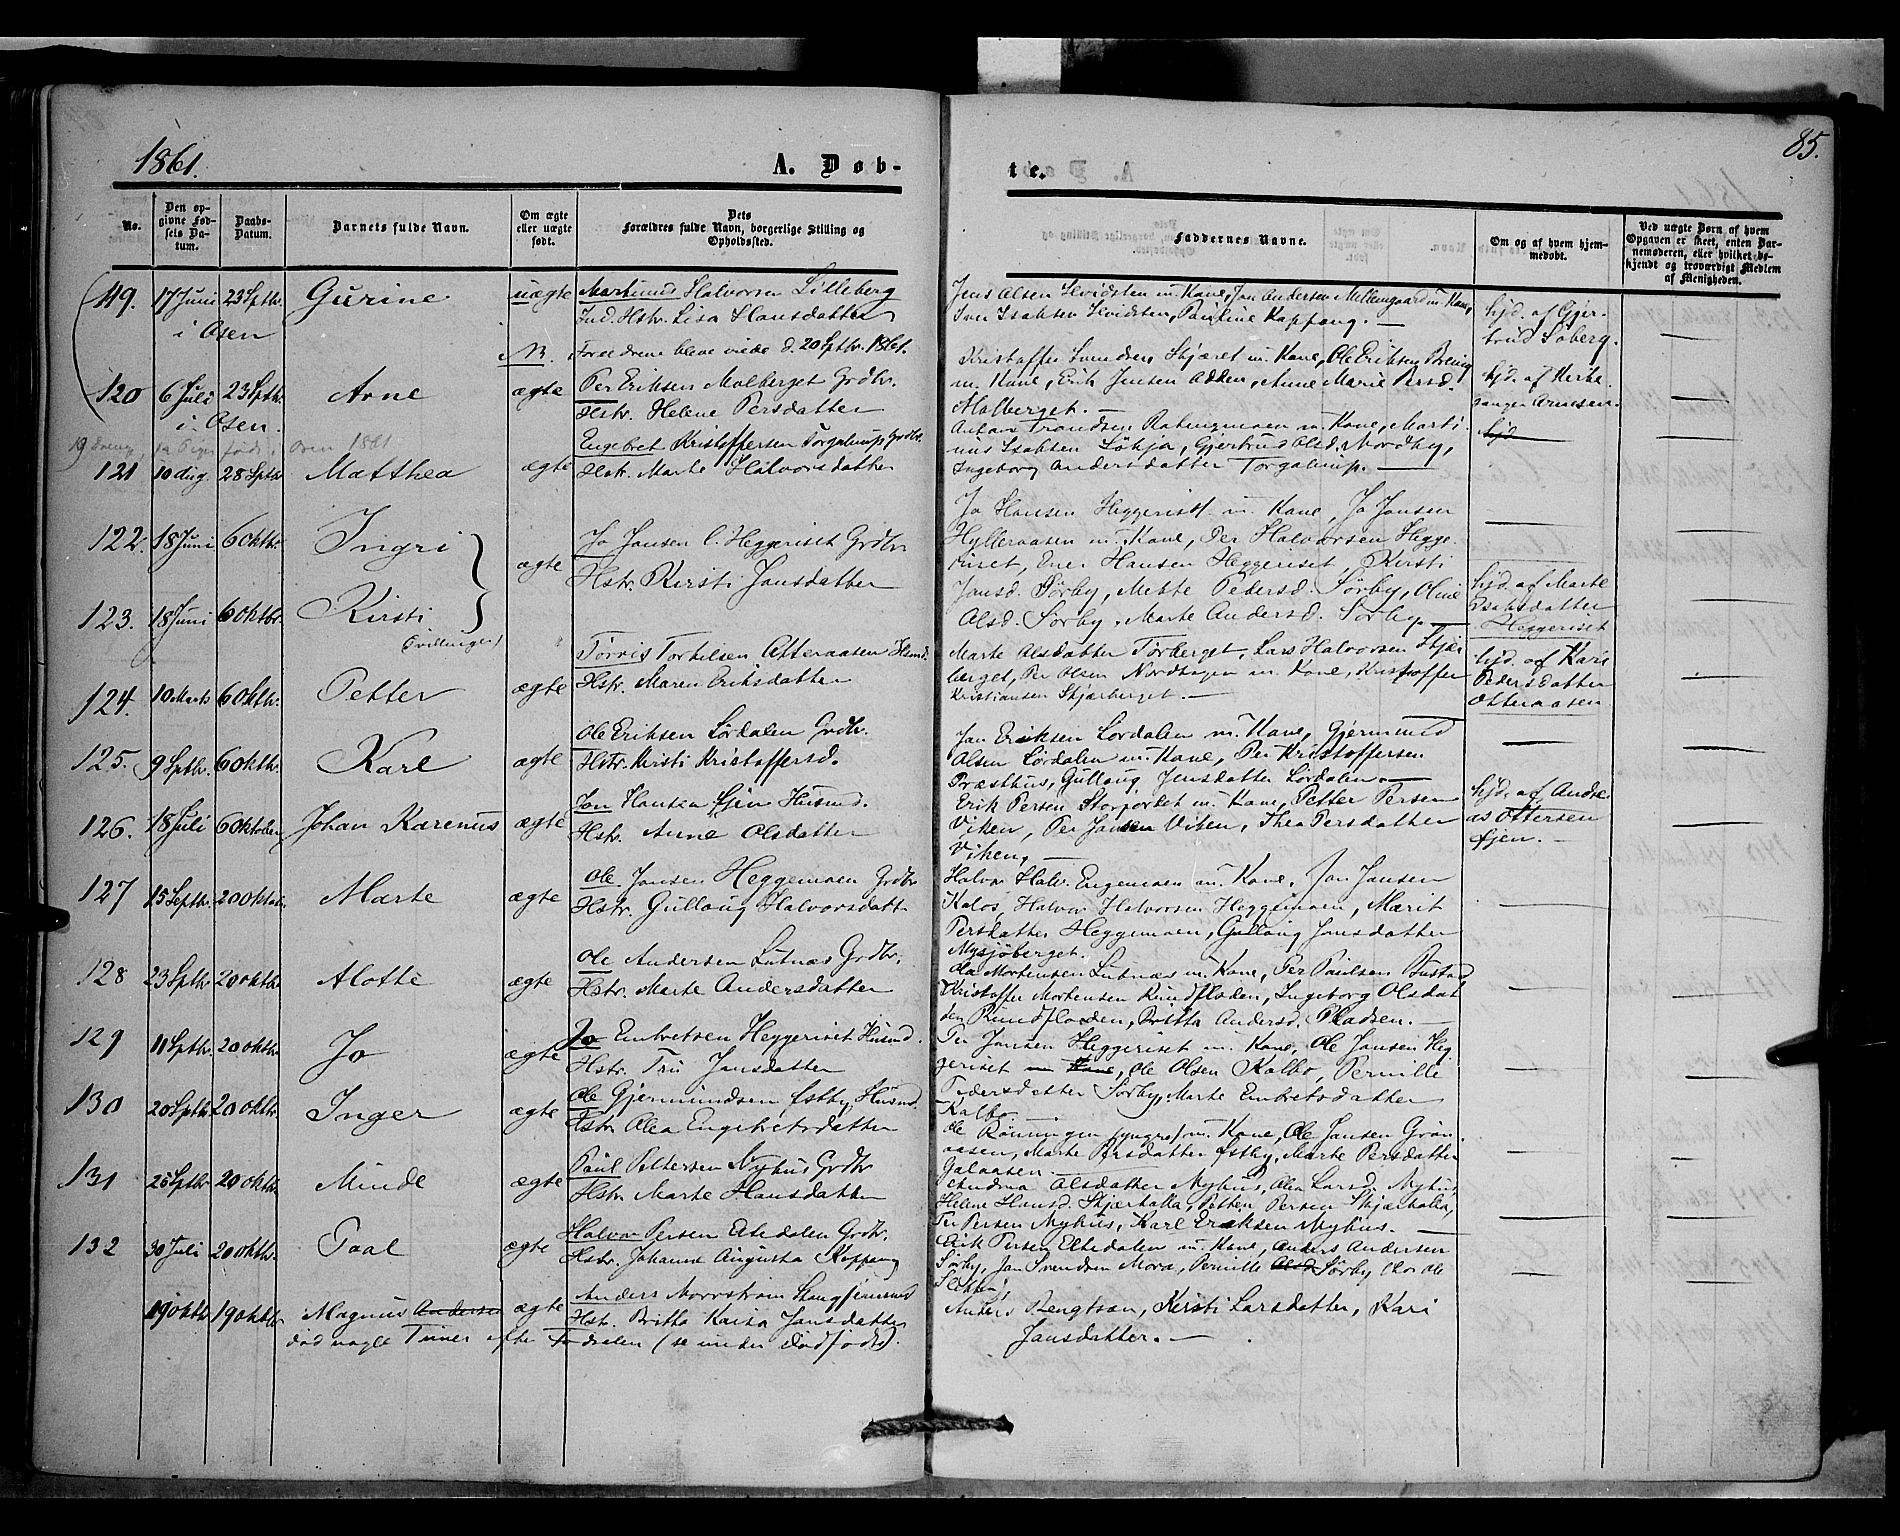 1861.
A. Døb-
No.
Den op-
givne Fød-
sels Da-
tum.
Daabs-
Datum.
Barnets fulde Navn.
Om ægte
eller uægte
født.
Dets
Forældres fulde Navn, borgerlige Stilling og
Opholdssted.
119. 17 Juni 23 Sptbr. Gurine uægte Martinus Halvorsen Lilleberg
i Osen Ind. Hstr. Lisa Hansdatter
NB. Forældrene bleve viede d. 20 Sptbr. 1861.
120 6 Juli 23 Sptbr. Arne ægte Per Eriksen Malberget Grdbr.
i Osen. Hstr. Helene Persdatter
Engebret Kristoffersen Torgalsrup Grdbr.
121 10 Aug. 28 Sptbr Matthea ægte Hstr. Marte Halvorsdatter
122. 18 Juni 6 Oktbr. Ingri Jo Jonsen Heggeriset Grdbr
ægte Hstr. Kirsti Jonsdatter
123. 18 Juni 6 Oktbr. Kirsti
(Tvillinger)
Tørris Torkelsen Otteraasen Husmd.
124. 10 Marts 6 Oktbr. Petter ægte Hstr. Maren Eriksdatter
Ole Eriksen Lørdalen Grdbr.
125. 9 Sptbr. 6 Oktbr. Karl ægte Hstr. Kirsti Kristoffersd.
Jon Hansen Husmd.
126. 18 Juli 6 Oktober Johan Karenus ægte Hstr. Anne Olsdatter
Ole Jonsen Heggemoen Grdbr
127 15 Septbr. 20 Oktbr. Marte ægte Hstr. Gullaug Halvorsdatt
Ole Andersen Lutnæs Grdbr.
128 23 Sptbr 20 Oktbr. Alotte ægte Hstr. Marte Andersdatter
129 11 Sptbr. 20 Oktbr. Jo ægte Jo Embretsen Heggeriset Husmd.
Hstr. Tru Jonsdatter
130 20 Sptbr 20 Oktbr. Inger ægte Ole Gjermundsen Østby Husmd.
Hstr. Olea Engebretsdatter
131 25 Sptbr 20 Oktbr Minde ægte Paul Pettersen Nyhus Grdbr
Hstr. Marte Hansdatter
132 30 Juli 20 Oktbr. Paal ægte Halvor Persen Eltedalen Grdbr.
Hstr. Johanne Augusta Koppang
Anders Norrstrøm
19 Oktbr 19 Oktbr Magnus Andersen ægte Hstr. Britta Kaisa Jonsdatter
død nogle Timer efter Fødselen (se under Dødfødte).
te.
85.
Faddernes Navne.
Om og af hvem hjem-
medøbt.
Ved uægte Børn af hvem
Opgaven er skeet, enten Bar-
nemoderen, eller hvilket be-
kjendt og troværdigt Medlem
af Menigheden.
Jens Olsen Hvidsten m. Kone, Jon Andersen Mellemgaard m. Kone,
Iver Isaksen Hvidsten, Pauline Kappang. —
hjd. af Gjer-
trud Søberg.
Kristoffer Svendsen Skjæret m. Kone, Ole Eriksen
m. Kone, Erik Jensen, Anne Marie Persd.
Malberget. —
hjd. af
Arnesen.
Anton Trondsen m. Kone, Marti-
nus Isaksen Løkja, Gjertrud Olsd. Nordby,
Ingeborg Andersdatter Torgalsrup. —
hjd
Jo Hansen Heggeriset m. Kone, Jo Jonsen
Hylleraasen m. Kone, Per Halvorsen Hegge-
riset, Ener Hansen Heggeriset, Kirsti
Jonsd. Sørby, Mette Pedersd. Sørby, Oline
Olsd. Sørby, Marte Andersd. Sørby —
hjd. af Marte
Isaksdatter
Heggeriset
Marte Olsdatter Tørberget, Lars Halvorsen Skjær-
berget, Per Olsen Nordhagen m. Kone, Kristoffer
Kristiansen Skjærberget. —
hjd. af Kari
Pedersdatter
Otteraasen
Jon Eriksen Lørdalen m. Kone, Gjermund
Olsen Lørdalen m. Kone, Per Kristoffersen
Præsthus, Gullaug Jensdatter Lørdalen. —
Erik Persen Storporket m. Kone, Petter Persen
Viken, Per Jonsen Viken, Thea Persdatter
Viken, —
hjd. af Andre-
as Ottersen
Halvor Halv. Engemoen m. Kone, Jon Jonsen
Kolos, Halvor Halvorsen Heggemoen, Marit
Persdatter Heggemoen, Gullaug Jonsdatter
Mysjøberget.
Ola Mortensen Lutnæs m. Kone, Per Paulsen
Kristoffer Mortensen Rundfloden, Ingeborg Olsdat
ter Rundfloden, Britta Andersd. Pladsen. —
Per Jonsen Heggeriset m. Kone, Ole Jonsen Heg-
geriset m Kone, Ole Olsen Kalbo, Pernille
Pedersdatter Sørby, Marte Embretsdatter
Kalbo —
Ole Rønningen (yngre) m. Kone, Ole Jonsen Grøn-
aasen, Marte Persdatter Østby, Marte Persdatter
Galaasen. —
Andrea Olsdatter Nyhus, Olea Larsd. Nyhus,
Helene Hansd. Skjærbakka, Petter Persen Skjærbakka,
Per Persen Nyhus, Karl Eriksen Nyhus. —
Erik Persen Eltedalen m. Kone, Anders Andersen
Sørby, Jon Svendsen Mora, Pernille Olsd Sørby (hos Ole
Anders Bengtson, Kersti Larsdatter, Kari
Jonsdatter. —